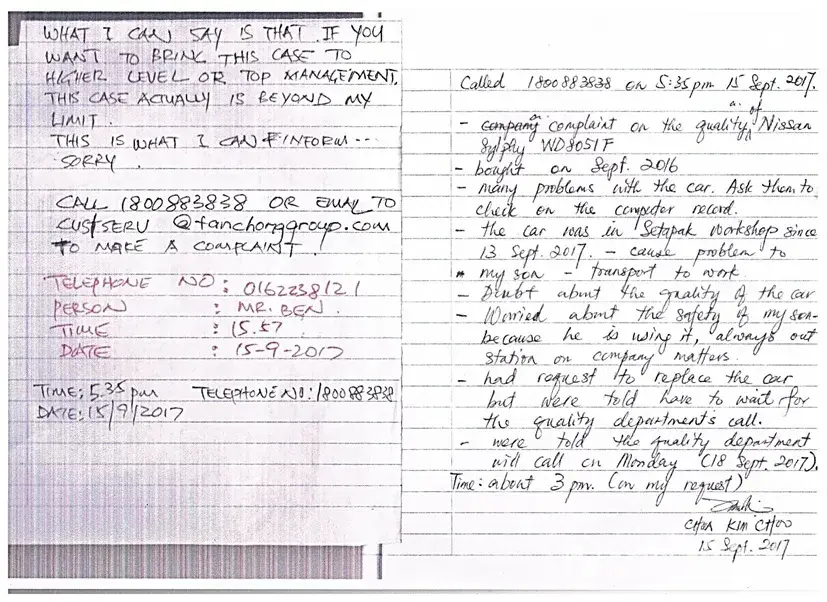 WHAT I CAN SAY IS THAT IF YOU
WANT TO BRING THIS CASE TO
HIGHER LEVEL OR TOP MANAGEMENT,
THIS CASE ACTUALLY IS BEYOND MY
LIMIT.
THIS IS WHAT I CAN INFORM...
SORRY.
CALL 1800883838 OR EMAIL TO
CUSTSERV@tanchonggroup.com
TO MAKE A COMPLAINT!
TELEPHONE NO : 0162238121
PERSON : MR. BEN.
TIME : 15.57
DATE : 15-9-2017
TIME: 5.35 pm TELEPHONE NO: 1800883838
DATE: 15/9/2017
Called 1800883838 on 5:35pm 15 Sept. 2017.
- company complaint on the quality of Nissan
Sylphy WD8051F
- bought on Sept. 2016
- many problems with the car. Ask them to
check on the computer record.
- the car was in Setapak Workshop since
13 Sept. 2017. - cause problem to
my son - transport to work
- Doubt about the quality of the car
- Worried about the safety of my son-
because he is using it, always out
station on company matters.
- had request to replace the car
but were told have to wait for
the quality department's call.
- were told the quality department
will call on Monday (18 Sept. 2017).
Time: about 3 pm. (on my request)
CHUA KIM CHOO
15 Sept. 2017